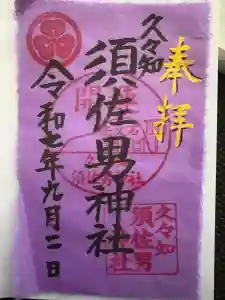 奉拝
久々知
須佐男神社
令和七年九月二日
久々知
須佐男
神社